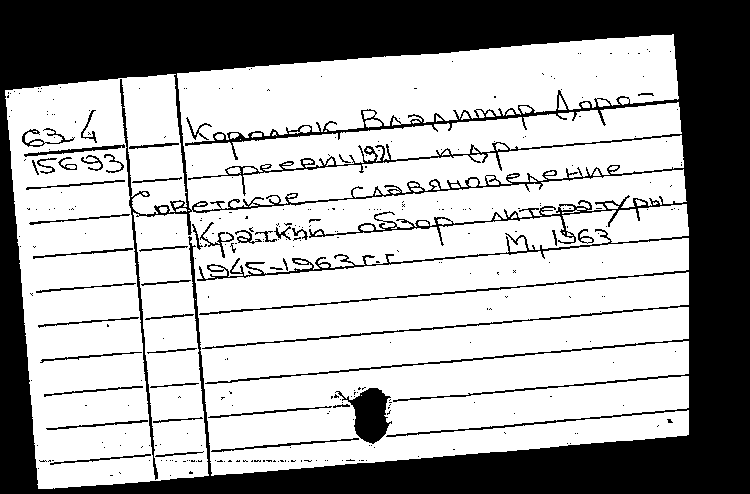 63-4
15693
Королюк, Владимир Доро-
феевич, 1921 и др.
Советское славяноведение
Краткий обзор литературы.
1945-1963 г.г. М., 1963